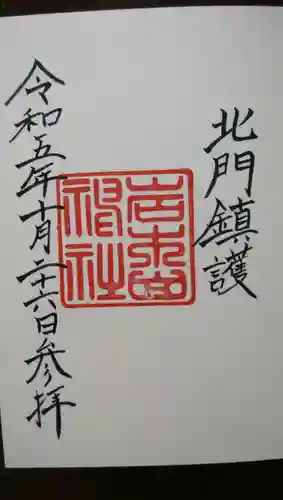 北門鎮護
岩木山
神社
令和五年十月二十六日参拝